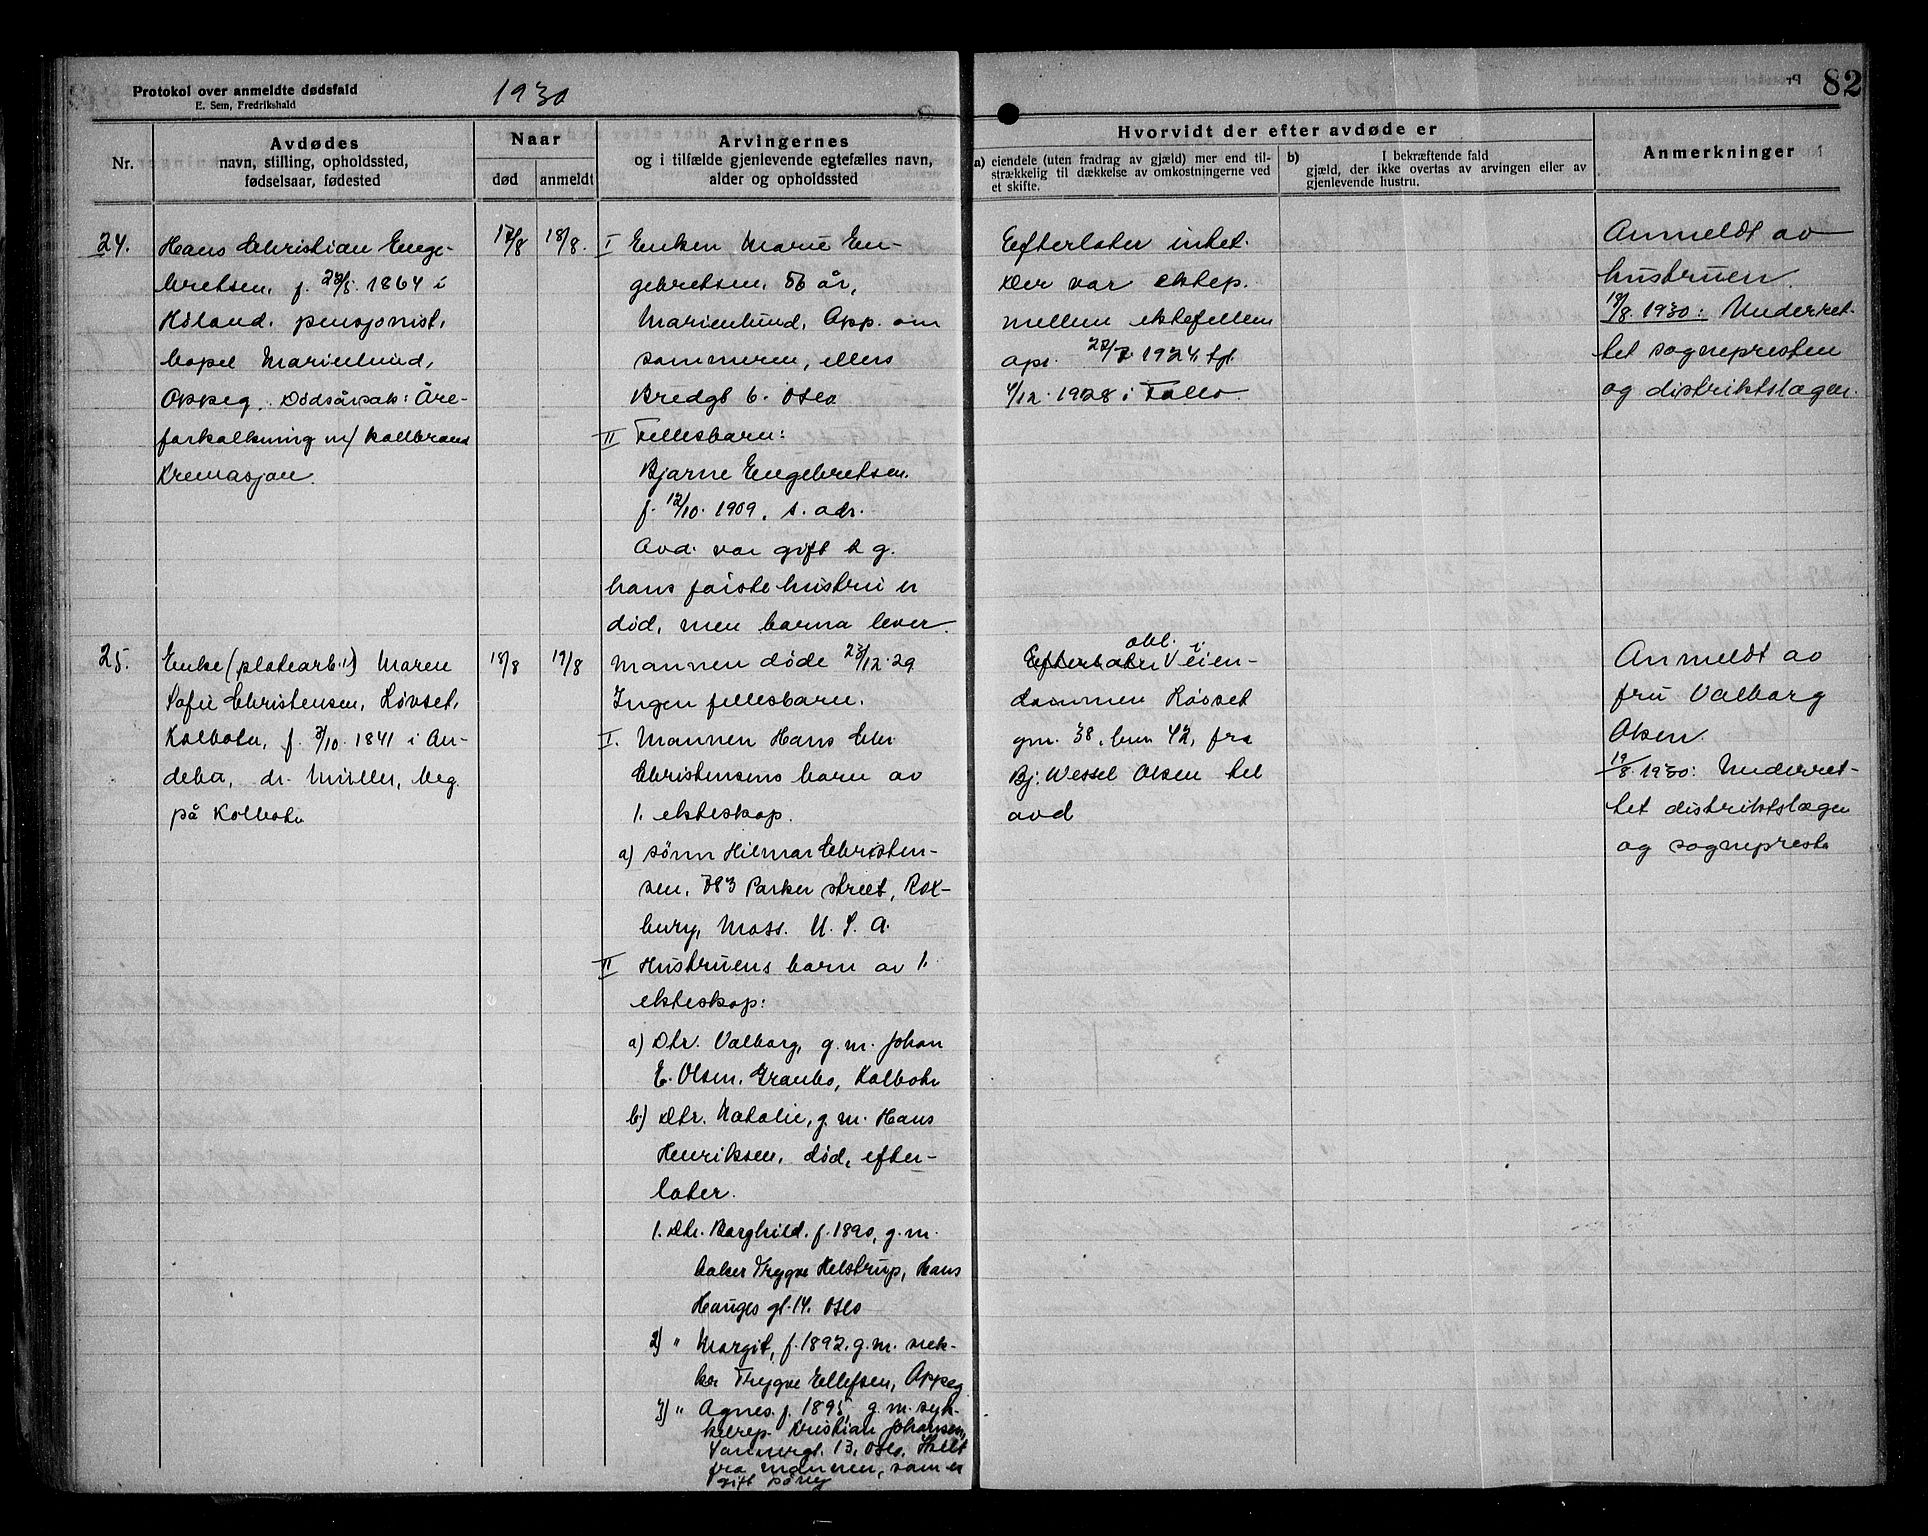 Protokol over anmeldte dødsfald
E. Sem, Fredrikshald
1930
82
Nr.
Avdødes
navn, stilling, opholdssted,
fødselsaar, fødested
Naar
død
anmeldt
Arvingernes
og i tilfælde gjenlevende egtefælles navn,
alder og opholdssted
Hvorvidt der efter avdøde er
a) eiendele (uten fradrag av gjæld) mer end til-
strækkelig til dækkelse av omkostningerne ved
et skifte.
b) I bekræftende fald
gjæld, der ikke overtas av arvingen eller av
gjenlevende hustru.
Anmerkninger
24.
Hans Christian Enge-
bretsen, f. 23/5 1864 i
Höland, pensjonist,
bopel Marienlund,
Oppeg. Dödsårsak: Åre-
forkalkning m/ kallbrand
Kremasjon.
17/8
18/8.
I Enken Marie En-
gebretsen, 56 år,
Marienlund, Opp. om
sommeren, ellers
Bredgt 6. Oslo
II Fellesbarn:
Bjarne Engebretsen.
f. 12/10. 1909, s. adr.
Avd. var gift 2 g.
hans første hustru er
död, men barna lever.
Efterlater intet.
Der var ektep.
mellem ektefellene
opr. 1924, tgl.
4/12. 1928 i Follo
Anmeldt av
hustruen.
19/8. 1930: Underret-
tet sognepresten
og distriktslægen.
25.
Enke (platearb.) Maren
Sofie Christensen, Løvset,
Kolbotn, f. 3/10. 1841 i An-
debu, dr. Müller, beg.
på Kolbotn
18/8
19/8
Mannen döde 23/12. 29
Ingen fellesbarn.
I. Mannen Hans Chr
Christensens barn av
1. ekteskap.
a) sönn Hilmar Christen-
sen, 383 Parker street, Rox-
bury, Mass. U. S. A.
II Hustruens barn av 1.
ekteskap:
a) Dtr. Valborg, g. m. Johan
E. Olsen, Granbo, Kolbotn
b) Dtr. Natalie, g. m. Hans
Henriksen, død, efter-
later.
1. Dtr. Borghild. f. 1890, g. m.
baker Trygve Helstrup, Hans
Hauges gt. 14. Oslo
2) " Margit, f. 1892. g. m. snek-
ker Trygve Ellefsen, Oppeg.
3) " Agnes. f. 1895, g. m. syk-
kelrep. Kristian Johansen,
Sannergt. 13, Oslo. Skilt
fra mannen, som er
gift påny
obl. i
Efterlater Veien-
dommen Løvset
gnr. 38, bnr. 42, fra
Bj. Wessel Olsen til
avd
Anmeldt av
fru Valborg
Olsen.
19/8. 1930: Underret-
tet distriktslægen
og sognepreste